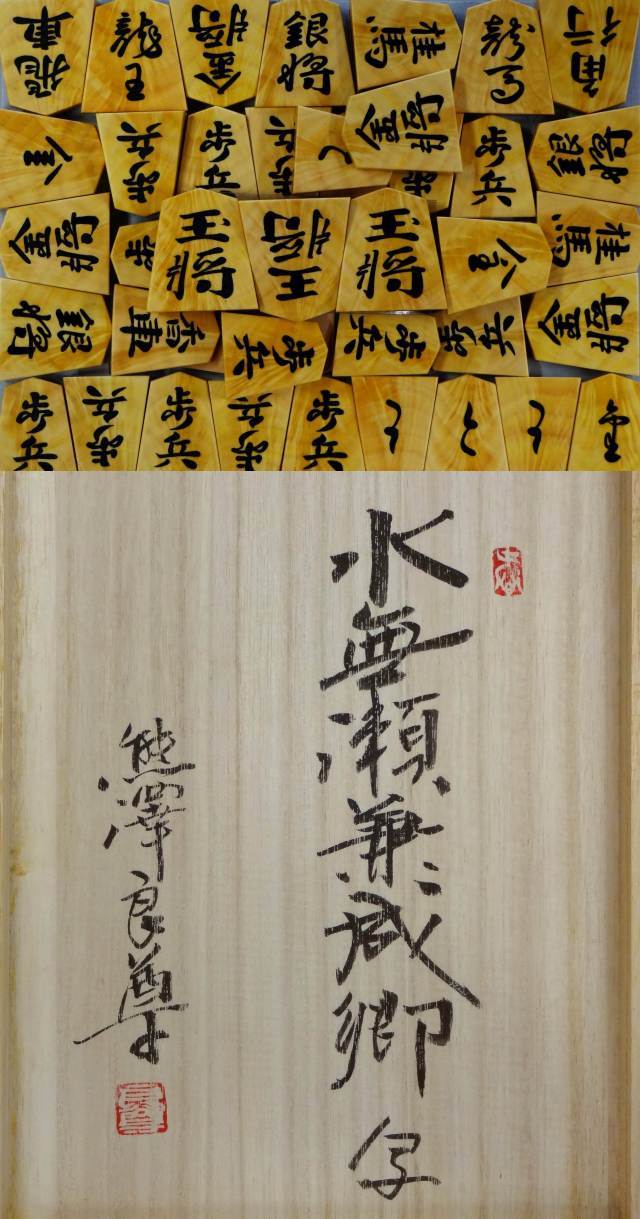 飛車
龍王
金将
銀将
桂馬
龍馬
角行
金
歩兵
歩兵
歩兵
と
金将
歩兵
銀将
金将
歩兵
王将
玉将
王将
金
桂馬
銀将
香車
歩兵
歩兵
歩兵
金将
歩兵
歩兵
歩兵
歩兵
歩兵
と
と
と
水無瀬兼成卿 写
熊澤良尊